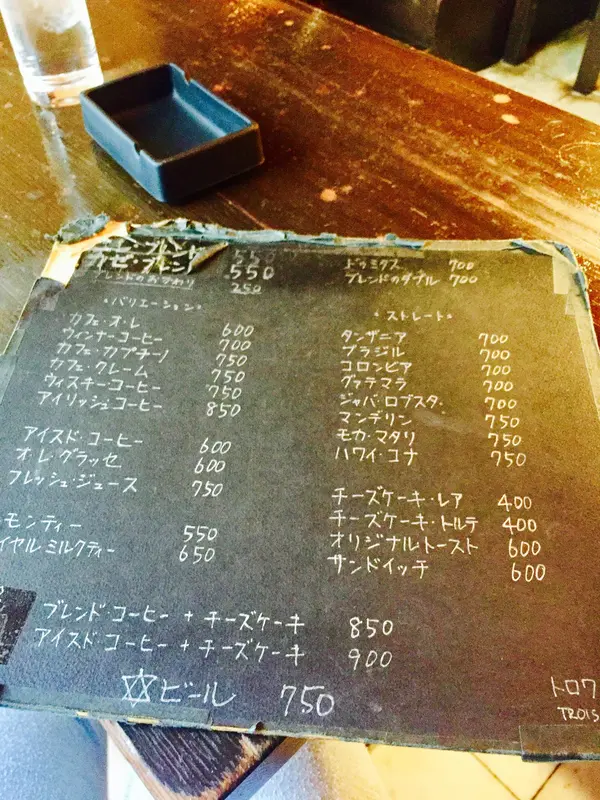 ブレンド 550
カゼ・ブレンド 550
ブレンドのおかわり 250
ドゥミタス 700
ブレンドのダブル 700
*バリエーション*
カフェ・オ・レ 600
ウィンナーコーヒー 700
カフェ・カプチーノ 750
カフェ・クレーム 750
ウィスキーコーヒー 750
アイリッシュコーヒー 850
アイスド・コーヒー 600
オ・レ・グラッセ 600
フレッシュ・ジュース 750
モンティー 550
イヤルミルクティー 650
*ストレート*
タンザニア 700
ブラジル 700
コロンビア 700
グァテマラ 700
ジャバ・ロブスタ・ 700
マンデリン 750
モカ・マタリ 750
ハワイ・コナ 750
チーズケーキ・レア 400
チーズケーキ・トルテ 400
オリジナルトースト 600
サンドイッチ 600
ブレンド・コーヒー + チーズケーキ 850
アイスド・コーヒー + チーズケーキ 900
✡ビール 750
トロワ
TROIS